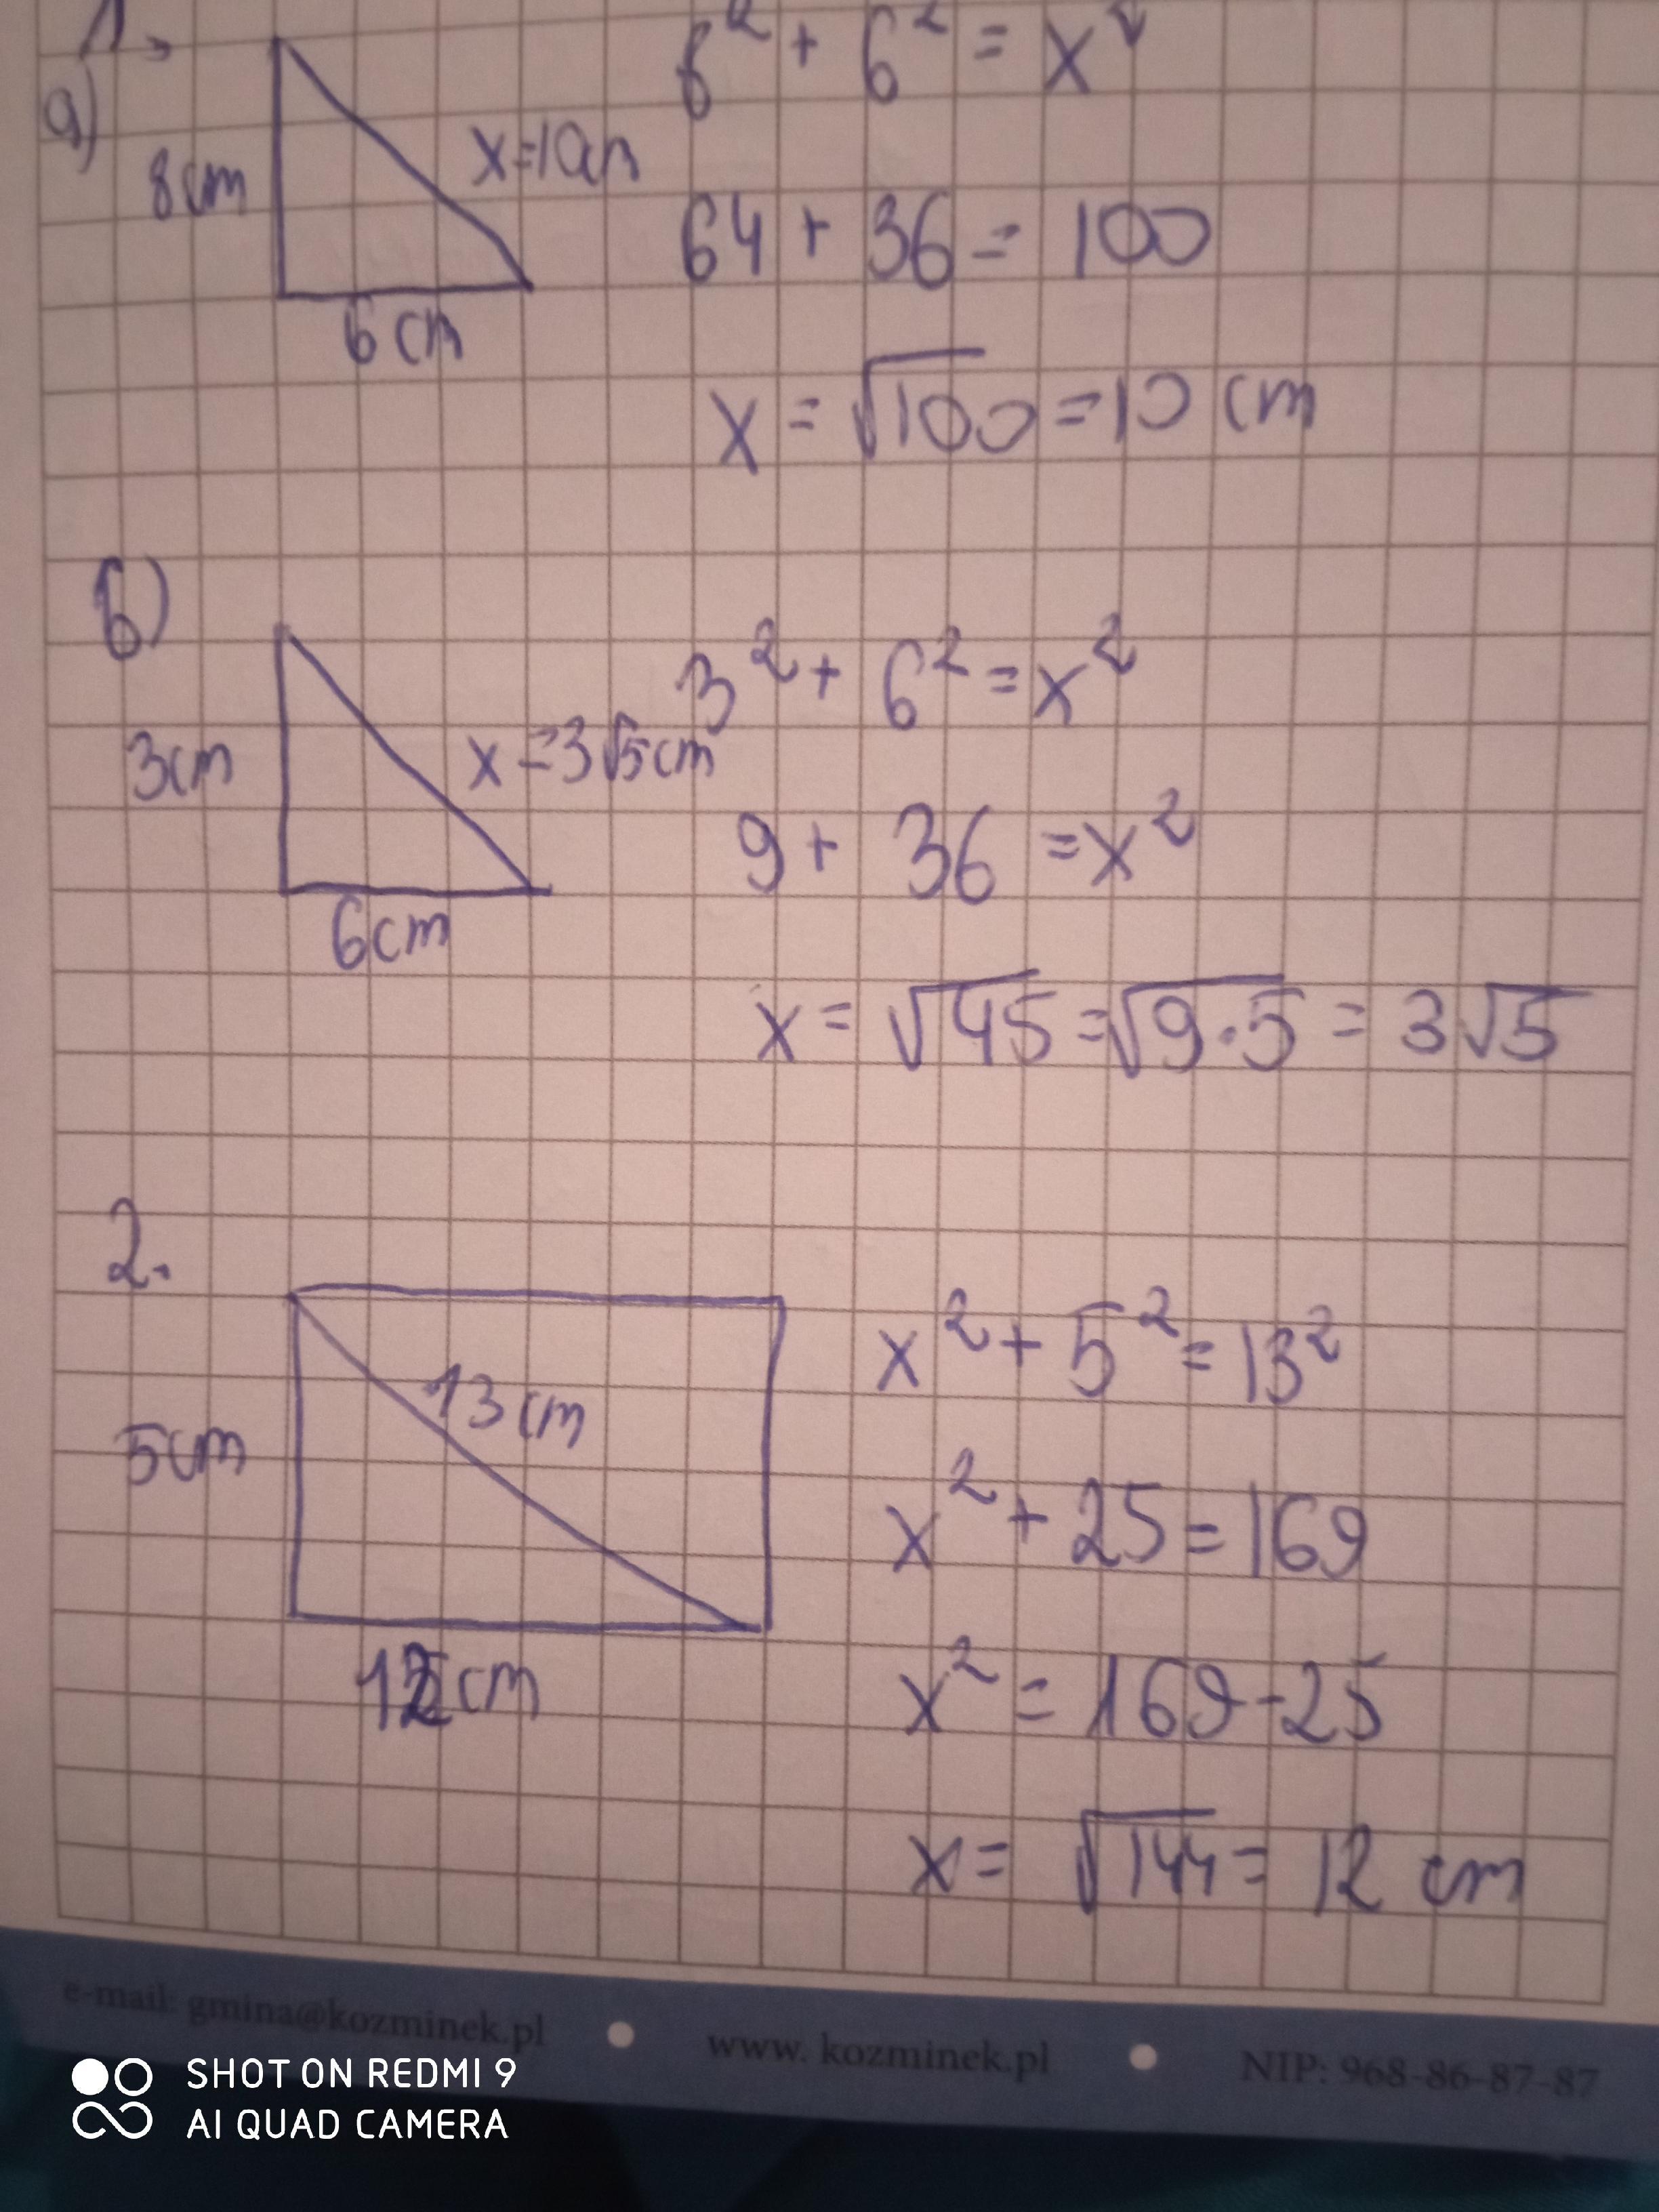 1.
a)
8cm
x=10cm
6cm
8² + 6² = x²
64 + 36 = 100
x = √100 = 10 cm
b)
3cm
x = 3√5cm
6cm
3² + 6² = x²
9 + 36 = x²
x = √45 = √9·5 = 3√5
2.
5cm
13cm
12cm
x² + 5² = 13²
x² + 25 = 169
x² = 169-25
x = √144 = 12 cm
e-mail: gmina@kozminek.pl • www. kozminek.pl • NIP: 968-86-87-87
SHOT ON REDMI 9
AI QUAD CAMERA